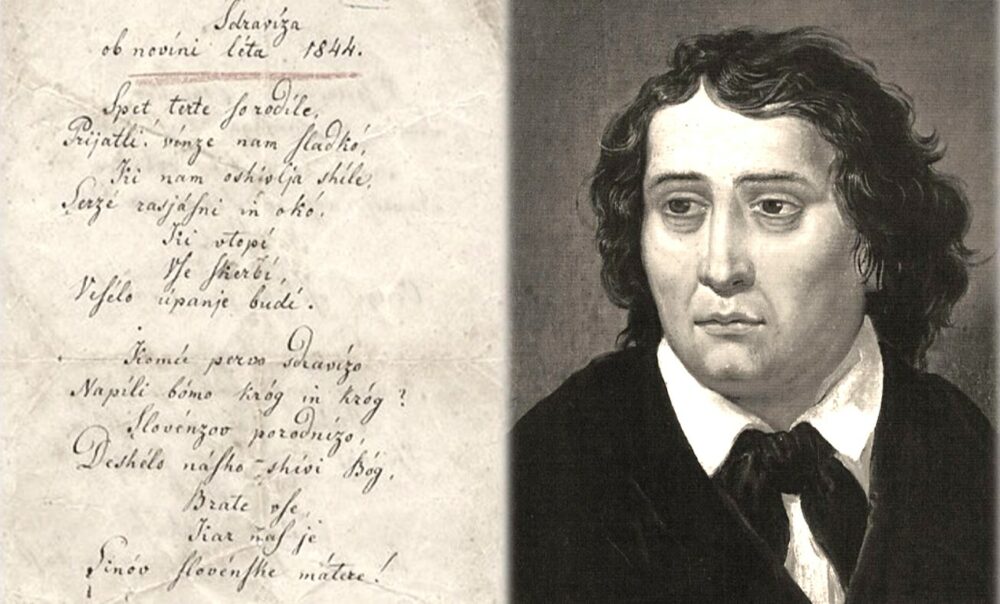 Sdraviza
ob novíni léta 1844.
Spet terte so rodíle,
Prijatli! vínze nam sladkó,
Ki nam oshívlja shíle,
Serzé rasjásni in okó,
Ki vtopí
Vse skerbí,
Vesélo úpanje budí.
Komú pervo sdravízo
Napíli bómo króg in króg?
Slovénzov porodnízo,
Deshélo násho shívi Bóg,
Brate vse
Kar nas je
Sinóv slovénske mátere!